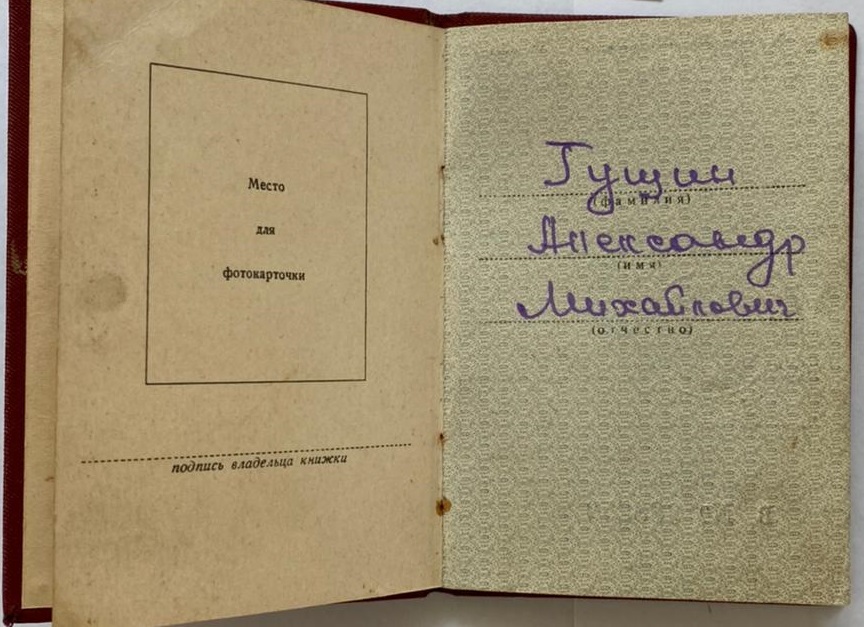 Место
для
фотокарточки
подпись владельца книжки
Гущин
(фамилия)
Александр
(имя)
Михайлович
(отчество)